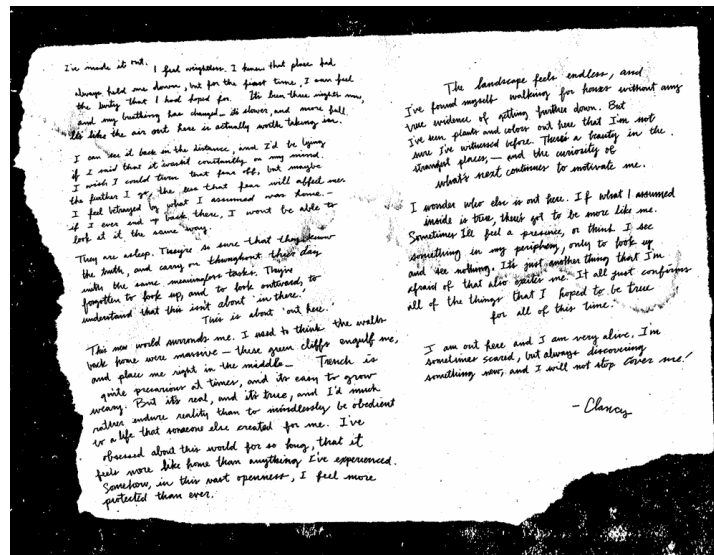 I've made it out. I feel weightless. I knew that place had
always held me down, but for the first time, I can feel
the unity that I had hoped for. It's been three nights now,
and my breathing has changed – it's slower, and more full.
It's like the air out here is actually worth taking in.
I can see it back in the distance, and I'd be lying
if I said that it wasn't continually on my mind.
I wish I could turn that fear off, but maybe
the further I go, the less that fear will affect me.
I feel betrayed by what I assumed was home. –
if I ever end up back there, I won't be able to
look at it the same way.
They are asleep. They're so sure that they know
the truth, and carry on throughout their day
with the same meaningless tasks. They're
forgotten to look up, and to look outward, to
understand that this isn't about 'in there.'
This is about 'out here.'
This new world surrounds me. I used to think the walls
back home were massive – these green cliffs engulf me,
and place me right in the middle – Trench is
quite precarious at times, and it's easy to grow
weary. But it's real, and it's true, and I'd much
rather endure reality than to mindlessly be obedient
to a life that someone else created for me. I've
obsessed about this world for so long, that it
feels more like home than anything I've experienced.
Somehow, in this vast openness, I feel more
protected than ever.
The landscape feels endless, and
I've found myself walking for hours without any
true evidence of getting further down. But
I've seen plants and colors out here that I'm not
sure I've witnessed before. There's a beauty in the
strangest places, – and the curiosity of
what's next continues to motivate me.
I wonder who else is out here. If what I assumed
inside is true, there's got to be more like me.
Sometimes I'll feel a presence, or think I see
something in my periphery, only to look up
and see nothing. It's just another thing that I'm
afraid of that also excites me. It all just confirms
all of the things that I hoped to be true
for all of this time.
I am out here and I am very alive. I'm
sometimes scared, but always discovering
something new, and I will not stop
– Clancy